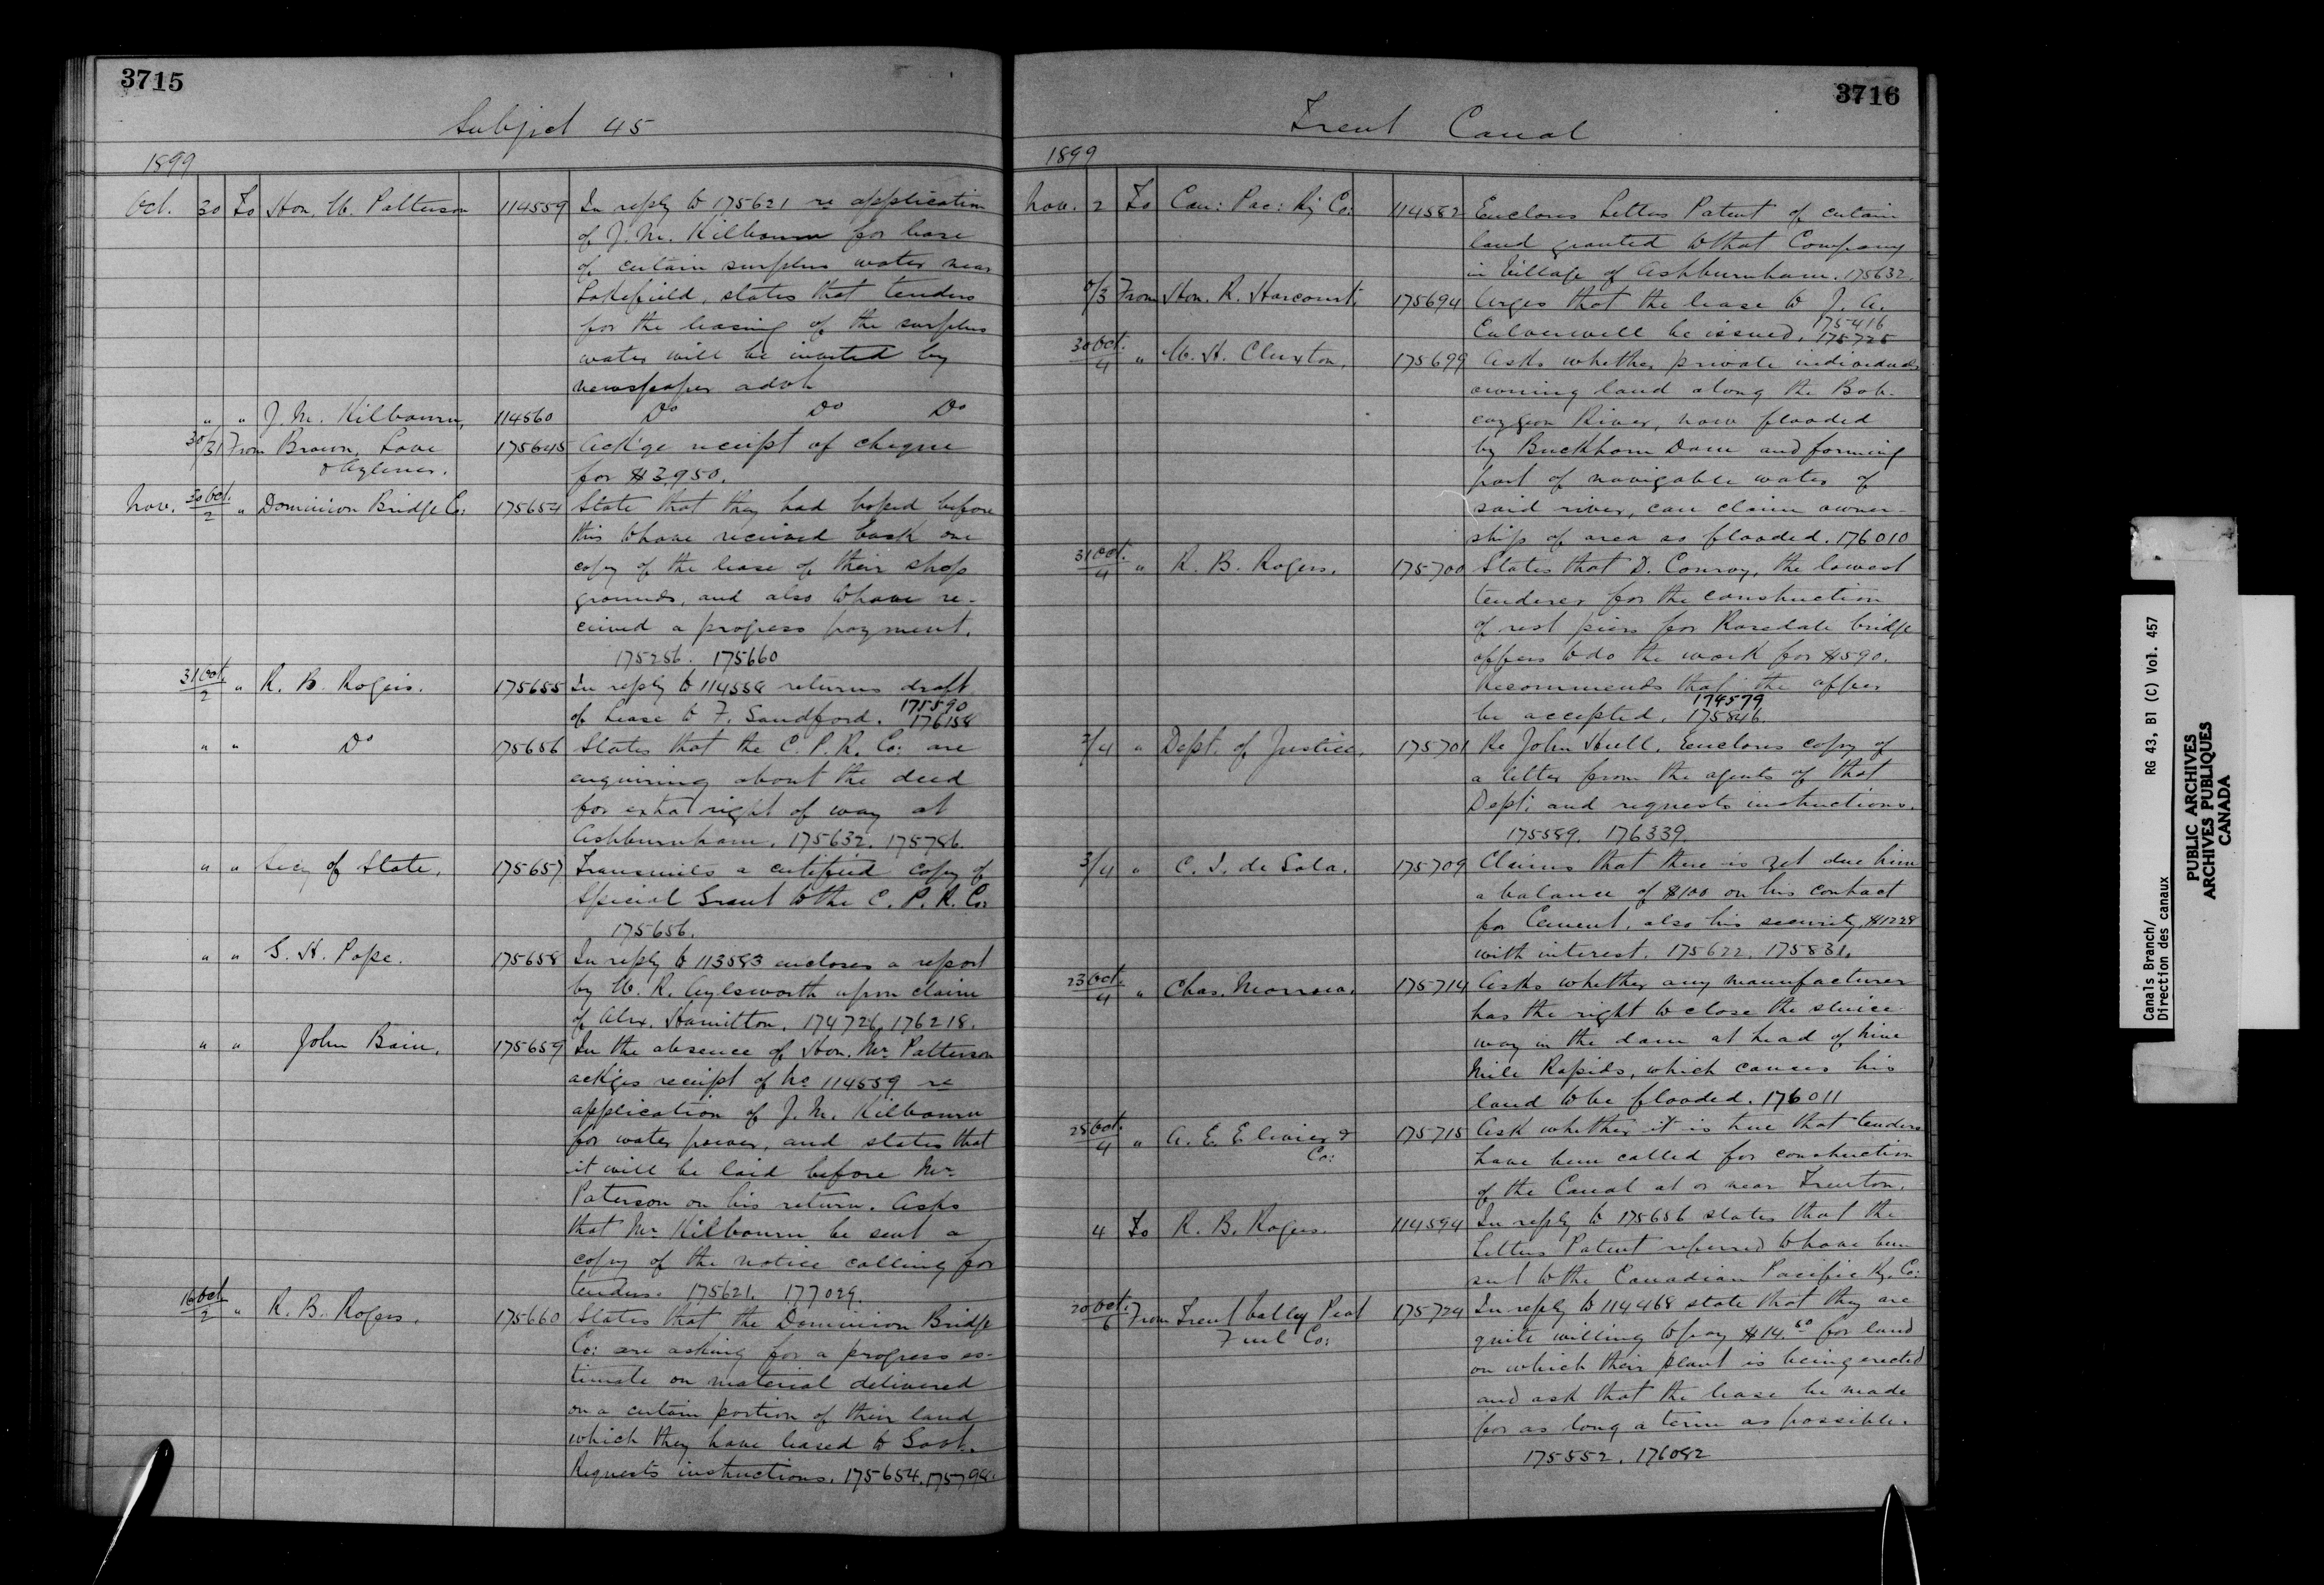 3715
Subject 45
1899
Oct. 30 To Hon. W. Patterson 114559 In reply to 175621 re application
of J. M. Kilbourn for lease
of certain surplus water near
Lakefield, states that tenders
for the leasing of the surplus
water will be invited by
newspaper advt
" " J. M. Kilbourn, 114560 Do Do Do
30/31 From Brown, Love 175645 Ack'ge receipt of cheque
& Aylmer. for $3,950.
Nov. 30 Oct./2 " Dominion Bridge Co: 175654 State that they had hoped before
this to have received back one
copy of the lease of their shop
grounds, and also to have re-
ceived a progress payment.
175256. 175660
31 Oct./2 " R. B. Rogers. 175655 In reply to 114558 returns draft
of Lease to F. Sandford. 175590
176158
" " Do 175656 States that the C. P. R. Co: are
enquiring about the deed
for extra right of way at
Ashburnham. 175632. 175786.
" " Secy of State. 175657 Transmits a certified copy of
Special Grant to the C. P. R. Co:
175656.
" " S. H. Pope. 175658 In reply to 113583 encloses a report
by W. R. Aylsworth upon claim
of Alex. Hamilton. 174726, 176218.
" " John Bain. 175659 In the absence of Hon. Mr Patterson
ack'ges receipt of No 114559 re
application of J. M. Kilbourn
for water power, and states that
it will be laid before Mr
Paterson on his return. Asks
that Mr Kilbourn be sent a
copy of the notice calling for
tenders. 175621. 177029.
16 Oct/2 " R. B. Rogers. 175660 States that the Dominion Bridge
Co: are asking for a progress es-
timate on material delivered
on a certain portion of their land
which they have leased to Govt.
Requests instructions. 175654. 175798.
3716
Trent Canal
1899
Nov. 2 To Can: Pac: Ry Co: 114582 Encloses Letters Patent of certain
land granted to that Company
in Village of Ashburnham. 175632.
/3 From Hon. R. Harcourt. 175694 Urges that the lease to J. A.
Culverwell be issued. 175416
175725
30 Oct./4 " W. H. Cluxton. 175699 Asks whether private individuals
owning land along the Bob-
caygeon River, now flooded
by Buckhorn Dam and forming
part of navigable water of
said river, can claim owner-
ship of area so flooded. 176010
31 Oct./4 " R. B. Rogers. 175700 States that D. Conroy, the lowest
tenderer for the construction
of rest piers for Rosedale bridge
offers to do the work for $590.
Recommends that the offer
be accepted. 174579
175846.
3/4 " Dept. of Justice. 175701 Re John Hull. Encloses copy of
a letter from the agents of that
Dept: and requests instructions.
175589. 176339.
3/4 " C. I. de Sola. 175709 Claims that there is yet due him
a balance of $100 on his contract
for Cement, also his security, $1228
with interest. 175622. 175831.
23 Oct./4 " Chas. 175714 Asks whether any manufacturer
has the right to close the sluice-
way in the dam at head of Nine
Mile Rapids, which causes his
land to be flooded. 176011
28 Oct./4 " A. E. Elivier & 175715 Ask whether it is true that tenders
Co: have been called for construction
of the Canal at or near Trenton.
4 To R. B. Rogers. 114594 In reply to 175656 states that the
Letters Patent referred to have been
sent to the Canadian Pacific Ry. Co:
20 Oct./6 From Trent Valley Peat 175724 In reply to 114468 state that they are
Fuel Co: quite willing to pay $14.60 for land
on which their plant is being erected
and ask that the lease be made
for as long a term as possible.
175552. 176082
Canals Branch/
Direction des canaux
RG 43, B1 (C) Vol. 457
PUBLIC ARCHIVES
ARCHIVES PUBLIQUES
CANADA